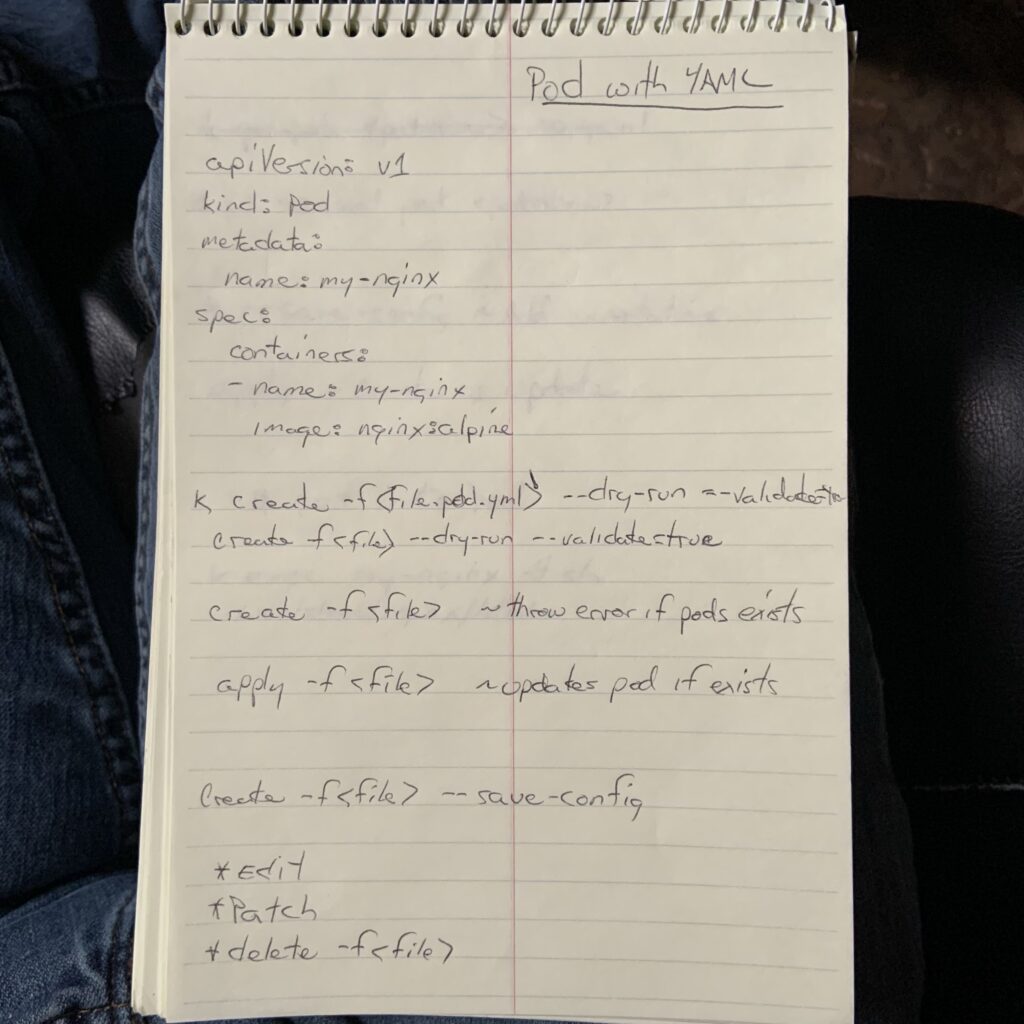 Pod with YAML
apiVersion: v1
kind: pod
metadata:
name: my-nginx
spec:
containers:
- name: my-nginx
image: nginx:alpine
k create -f <file.pod.yml> --dry-run --validate=
create f <file> --dry-run --validate=true
create -f <file> ~throw error if pods exists
apply -f <file> ~updates pod if exists
Create -f <file> --save-config
* Edit
* Patch
* delete -f <file>